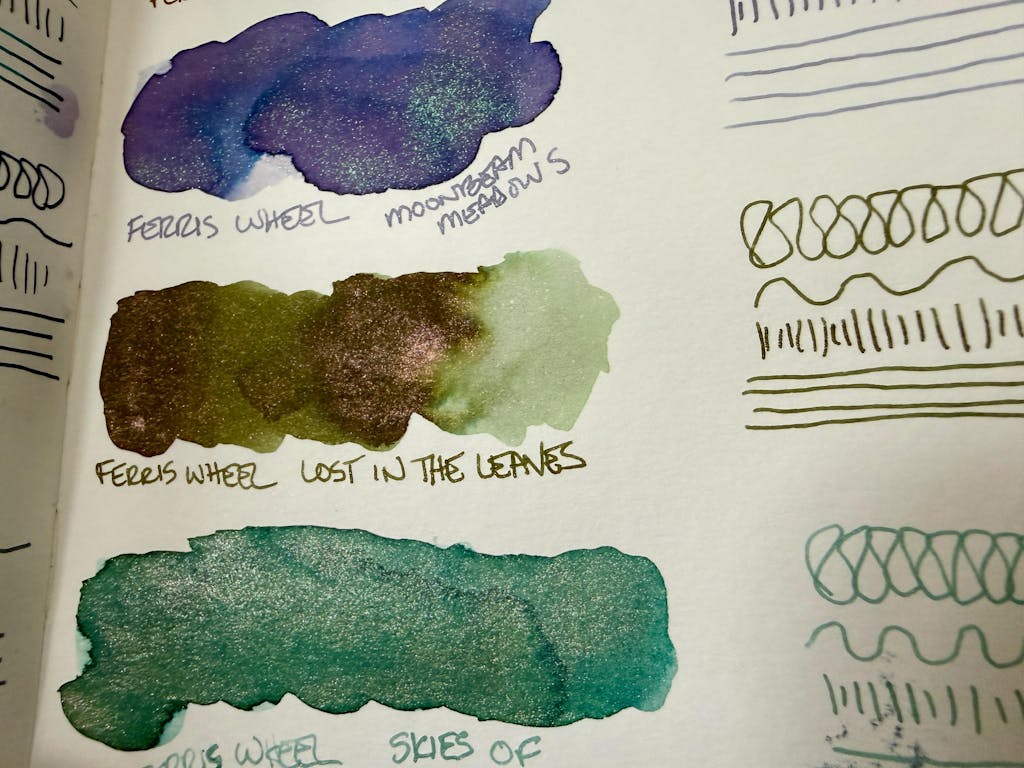 FERRIS WHEEL MOONBEAM
MEADOWS
FERRIS WHEEL LOST IN THE LEAVES
FERRIS WHEEL SKIES OF